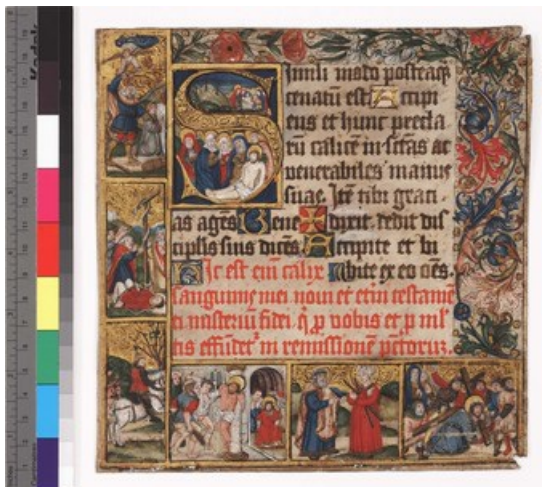 Simili modo posteaq̄
cenatū est Accipi
ens et hunc precla
rū calicē in sc̄tas ac
venerabiles manus
suas. Itē tibi graci
as agēs Bene ✠ dixit dedit dis
cipl̄is suis dicēs Accipite et bi
Hic est em̄ calix bite ex eo oēs.
sanguinis mei noui et etn̄i testamē
ti misteriū fidei q̄ p̄ vobis et p̄ ml̄
tis effūdet᷑ in remissionē pctōruz.
Kodak